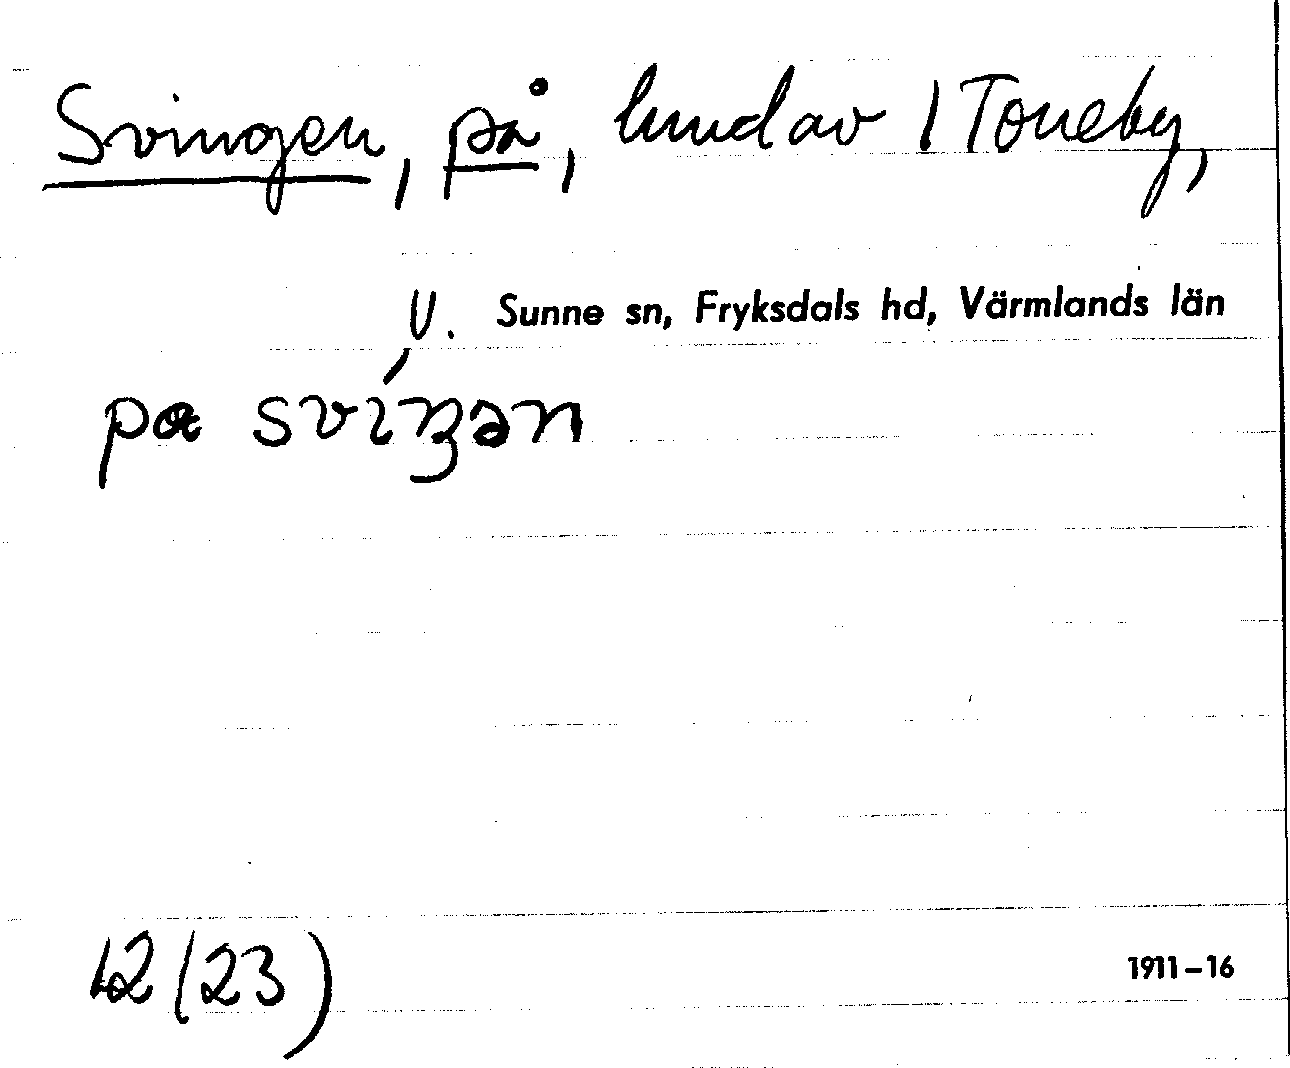 Svingen, på, lund av 1 Toneby,
V. Sunne sn, Fryksdals hd, Värmlands län
pɑ svíŋən
12 (23)
1911–16